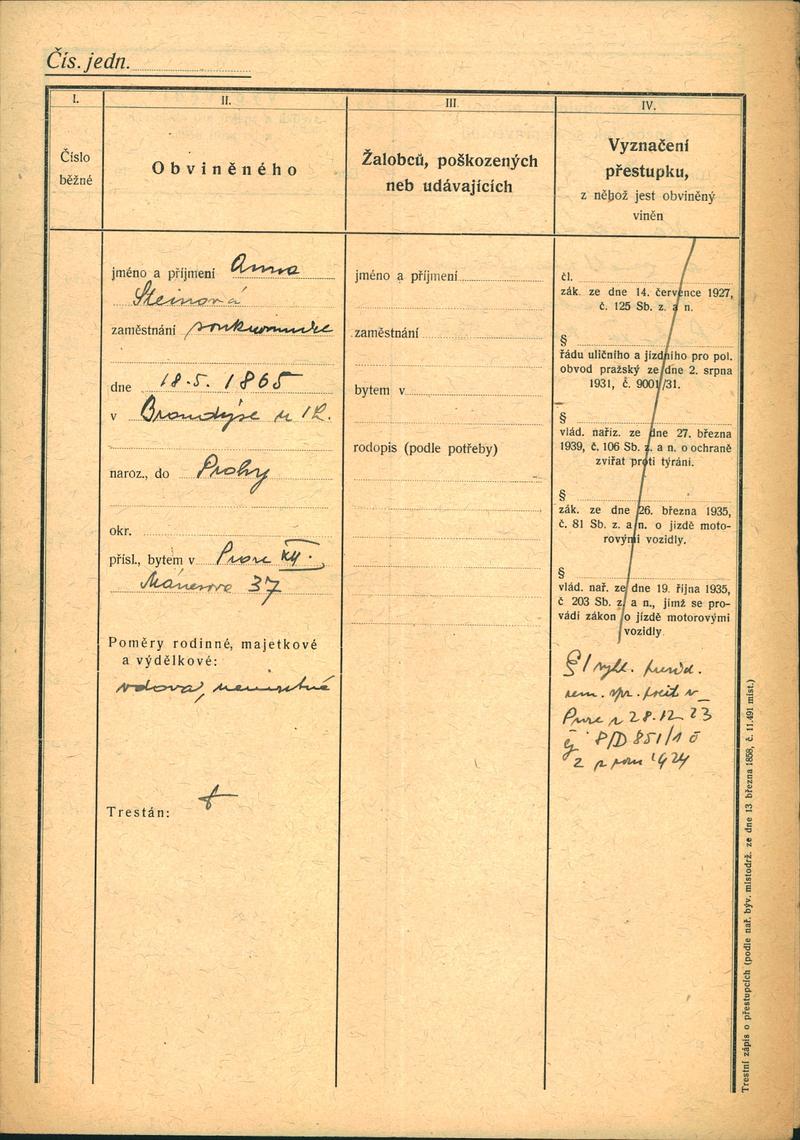 Čís. jedn.
I.
II.
III.
IV.
Číslo
běžné
Obviněného
Žalobců, poškozených
neb udávajících
Vyznačení
přestupku,
z něhož jest obviněný
viněn
jméno a příjmení Anna
Steinová
zaměstnání soukromnice
dne 18.5. 1865
v Brandýse n/L.
naroz., do Prahy
okr.
přísl., bytem v Praze XII.
Mánesova 37
Poměry rodinné, majetkové
a výdělkové:
vdova, nemajetná
Trestán:
jméno a příjmení
zaměstnání
bytem v
rodopis (podle potřeby)
čl.
zák. ze dne 14. července 1927,
č. 125 Sb. z. a n.
§
řádu uličního a jízdního pro pol.
obvod pražský ze dne 2. srpna
1931, č. 9001/31.
§
vlád. nařiz. ze dne 27. března
1939, č. 106 Sb. z. a n. o ochraně
zvířat proti týrání.
§
zák. ze dne 26. března 1935,
č. 81 Sb. z. a n. o jízdě moto-
rovými vozidly.
§
vlád. nař. ze dne 19. října 1935,
č 203 Sb. z. a n., jímž se pro-
vádí zákon o jízdě motorovými
vozidly
§ 1 vyhl. presid.
zem. spr. polit v
Praze z 28.12.23
čj 8/D 851/1 č
2 z roku 1924
Trestní zápis o přestupcích (podle nař. býv. místodrž. ze dne 13 března 1858, č. 11.491 míst.)